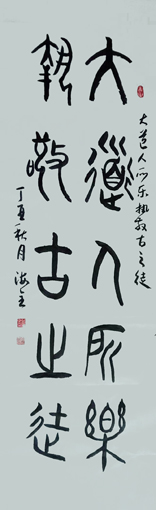 大道人所乐执敢古之徒
大道人所樂
執敢古之徒
丁酉秋月海